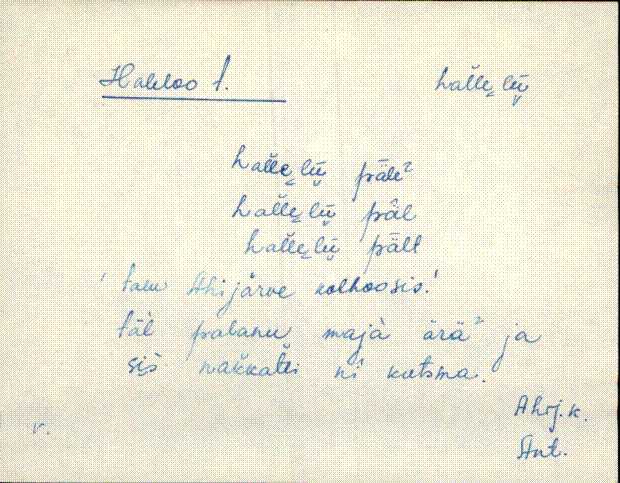 Halıloo t. hal̆l̆ȩlū̮
hal̆l̆ȩlū̮ päle²
hal̆l̆ȩlū̮ päl
hal̆l̆ȩlū̮ pält
' talu Ahijärve kolhoosis!
täl palanu majà ärä² ja
si̮i̮s nakkati nì kutsma.
Ahij.k.
v. Ant.